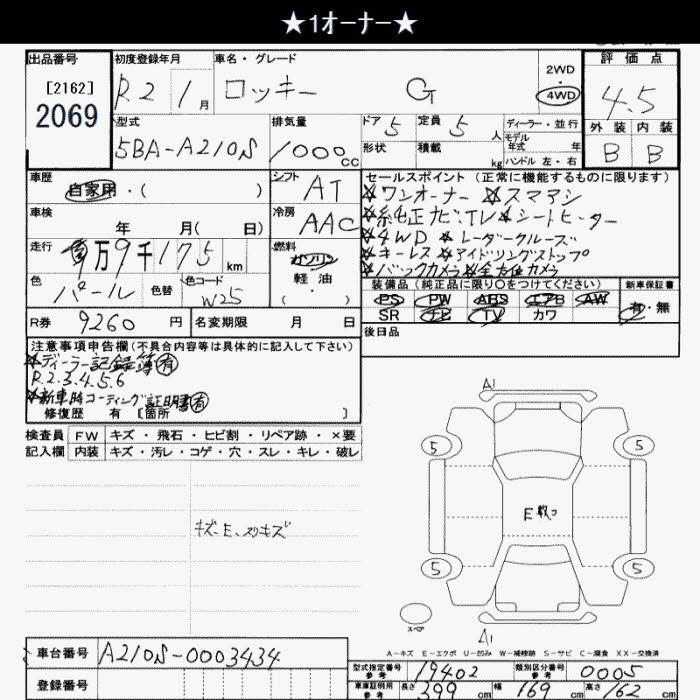 ★1オーナー★
出品番号
[2162]
2069
初度登録年月
R.2 1月
車名・グレード
ロッキー G
2WD
・
4WD
評価点
4.5
外装 内装
B B
型式
5BA-A210S
排気量
1000cc
ドア 5
定員 5人
ディーラー・並行
モデル
年式 年
形状
積載 kg
ハンドル 左・右
車歴
自家用・( )
シフト
AT
セールスポイント (正常に機能するものに限ります)
☆ワンオーナー ☆スマアシ
☆純正ナビ、TV ☆シートヒーター
☆4WD ☆レーダークルーズ
☆キーレス ☆アイドリングストップ
☆バックカメラ ☆全方位カメラ
車検
年 月( 日)
冷房
AAC
走行
万9千175km
燃料
ガソリン
軽油
・
( )
色
パール
色替
色コード
W25
装備品(純正品に限り○をつけてください)
新車保証書
PS PW ABS エアB AW
SR ナビ TV カワ
有・無
R券 9260円
名変期限 月 日
後日品
注意事項申告欄(不具合内容等は具体的に記入して下さい)
☆ディーラー記録簿(有)
R.2.3.4.5.6
☆新車時コーティング証明書(有)
修復歴 有 [箇所 ]
検査員
記入欄
FW キズ・飛石・ヒビ割・リペア跡・×要
内装 キズ・汚レ・コゲ・穴・スレ・キレ・破レ
キズ、E、スリキズ
A1
5 5
E
5 5
スペア
A1
A-キズ E-エクボ U-凹み W-補修跡 S-サビ C-腐食 XX-交換済
車台番号 A210S-0003434
登録番号
型式指定番号
参考
19402
類別区分番号
参考
0005
車庫証明用
参考
長さ 399cm 幅 169cm 高さ 162cm